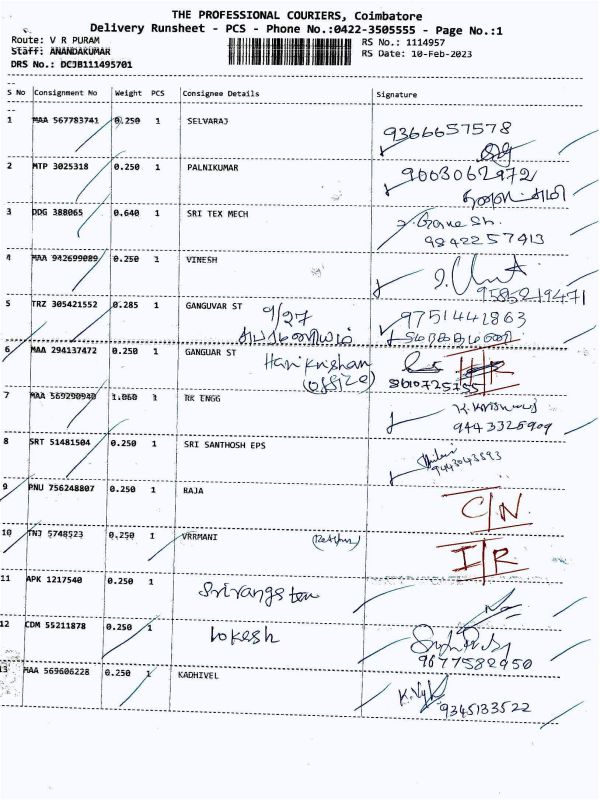 THE PROFESSIONAL COURIERS, Coimbatore
Delivery Runsheet - PCS - Phone No.:0422-3505555 - Page No.:1
Route: V R PURAM RS No.: 1114957
Staff: ANANDAKUMAR RS Date: 10-Feb-2023
DRS No.: DCJB111495701
S No Consignment No Weight PCS Consignee Details Signature
1 MAA 567783741 0.250 1 SELVARAJ 9366657578
2 MTP 3025318 0.250 1 PALNIKUMAR 9003062972
3 DDG 388065 0.640 1 SRI TEX MECH
9842257413
4 MAA 942699089 0.250 1 VINESH
9585219471
5 TRZ 305421552 0.285 1 GANGUVAR ST 9/27 9751441863
6 MAA 294137472 0.250 1 GANGUAR ST Harikrishan
(office) 8610725755
7 MAA 569290940 1.060 1 RK ENGG
9443326909
8 SRT 51481504 0.250 1 SRI SANTHOSH EPS
9443043893
9 PNU 756248807 0.250 1 RAJA C/N
10 TNJ 5748523 0.250 1 VRRMANI I/R
11 APK 1217540 0.250 1
12 CDM 55211878 0.250 1 Lokesh
9677582950
13 MAA 569606228 0.250 1 KADHIVEL
9345133522